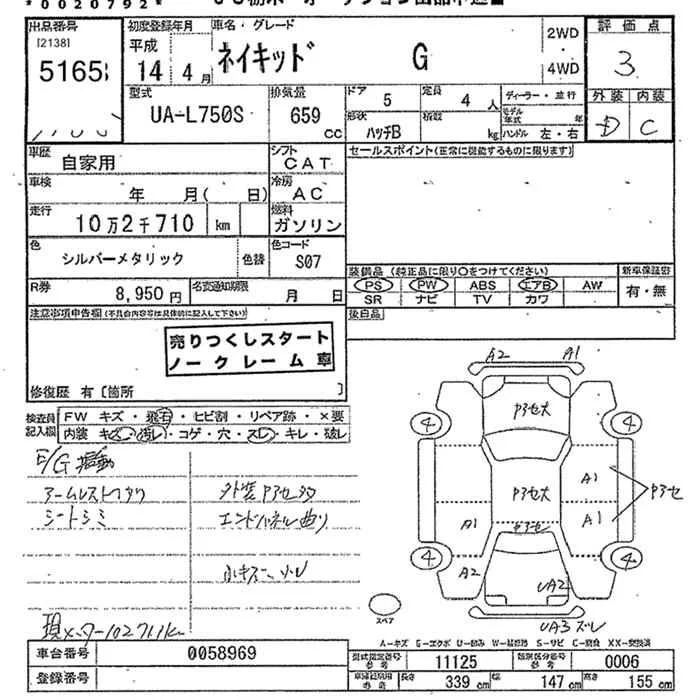 *0020792*
出品番号
[2138]
5165
初度登録年月
平成
14 4月
車名・グレード
ネイキッド G
2WD
4WD
評価点
3
外装 内装
D C
型式
UA-L750S
排気量
659 cc
ドア 5
定員 4 人
形状 ハッチB
積載 kg
ディーラー・並行
モデル年式 年
ハンドル 左・右
車歴
自家用
シフト
CAT
セールスポイント(正常に機能するものに限ります)
車検
年 月( 日)
冷房
AC
走行
10万2千710 km
燃料
ガソリン
色
シルバーメタリック
色替
色コード
S07
装備品 (純正品に限り○をつけてください)
新車保証書
PS PW ABS エアB AW
有・無
SR ナビ TV カワ
R券
8,950円
名変通知期限
月 日
後日品
注意事項申告欄(不具合内容等は具体的に記入して下さい)
売りつくしスタート
ノークレーム車
修復歴 有〔箇所 〕
検査員
記入欄
FW キズ・飛石・ヒビ割・リペア跡・×要
内装 キズ・汚れ・コゲ・穴・スレ・キレ・破レ
アームレストワク
シートシミ
エンドパネル曲り
A2 A1
アセ大
4 4
アセ大
A1
A1
A1
アセ
4 4
A2
UA2
UA3 ズレ
スペア
A-キズ G-エクボ U-凹み W-補修跡 S-サビ C-腐食 XX-交換済
車台番号 0058969
型式指定番号
参考
11125
類別区分番号
参考
0006
登録番号
長さ 339 cm
幅 147 cm
高さ 155 cm